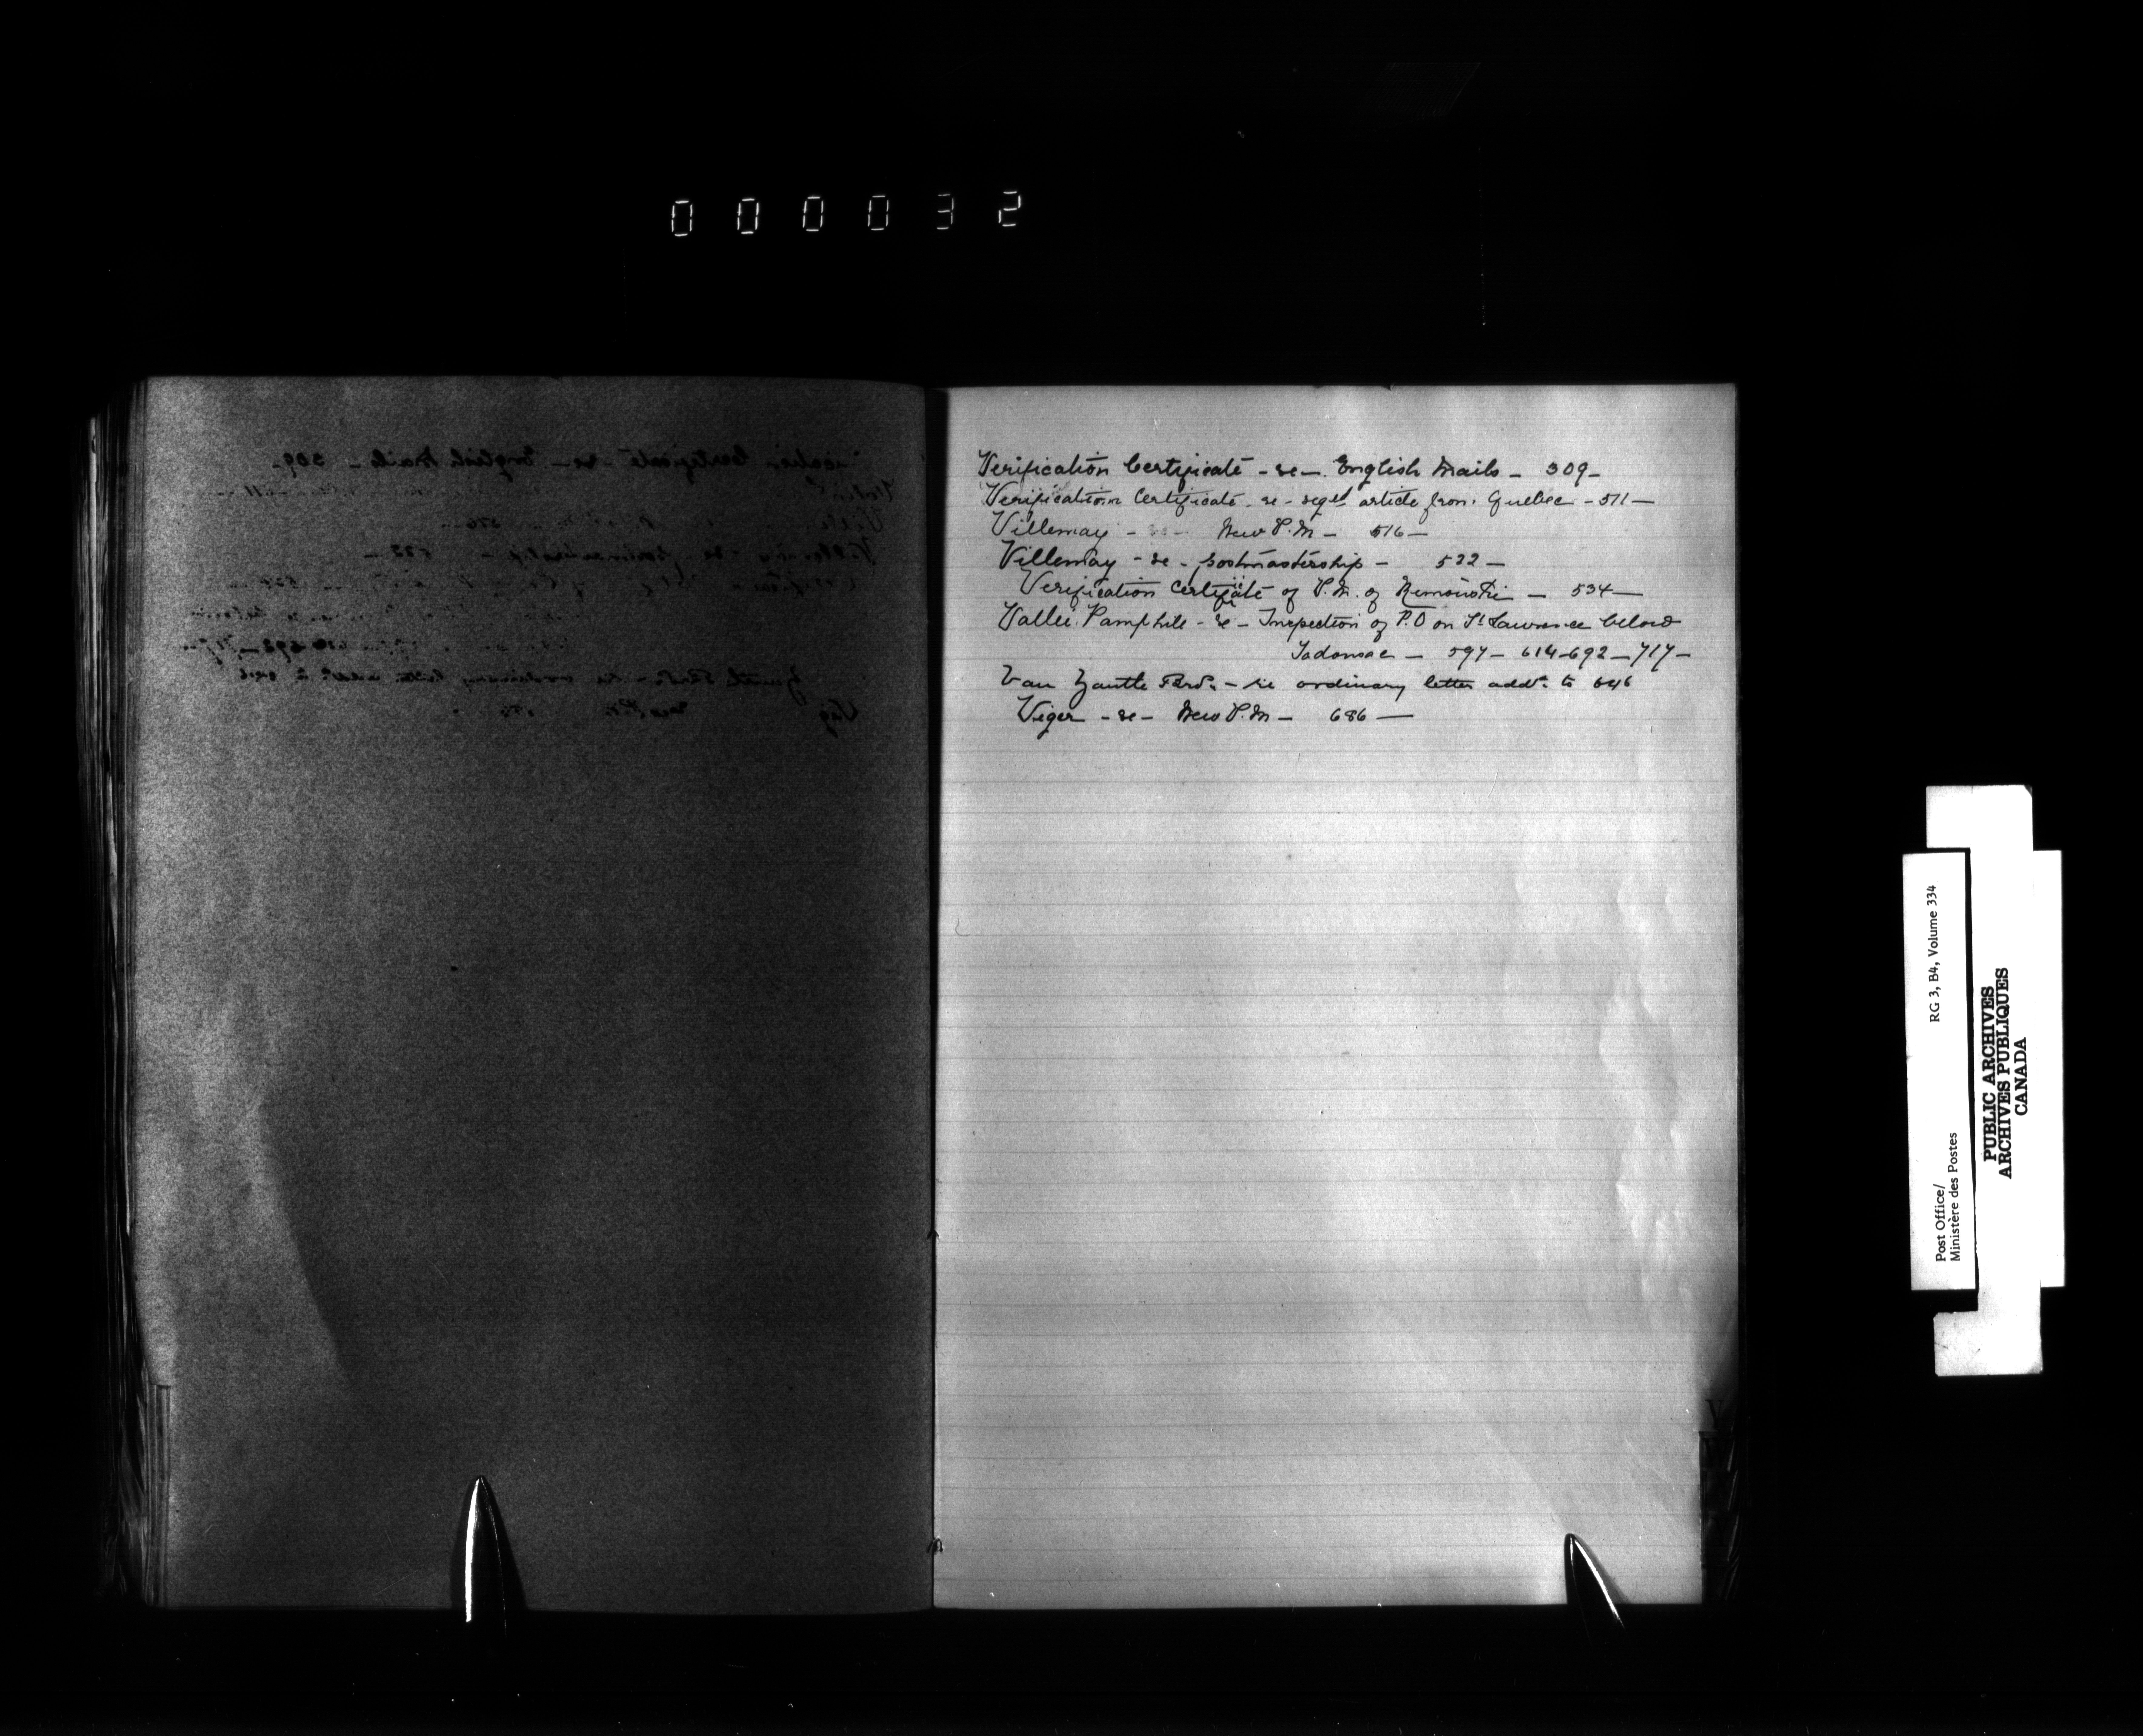 000032
Verification Certificate - re - English Mails - 309 -
Verification Certificate - re - regd article from Quebec - 511 -
Villemay - re - New P.M - 516 -
Villemay - re - postmastership - 522 -
Verification Certificate of P.M. of - 534 -
Vallée Pamphile - re - Inspection of P.O on St Lawrence below
Tadousac - 597 - 614 - 692 - 717 -
Van Zantte - re ordinary letter addd to 646
Viger - re - New P.M - 686 -
V
Post Office/ RG 3, B4, Volume 334
Ministère des Postes
PUBLIC ARCHIVES
ARCHIVES PUBLIQUES
CANADA